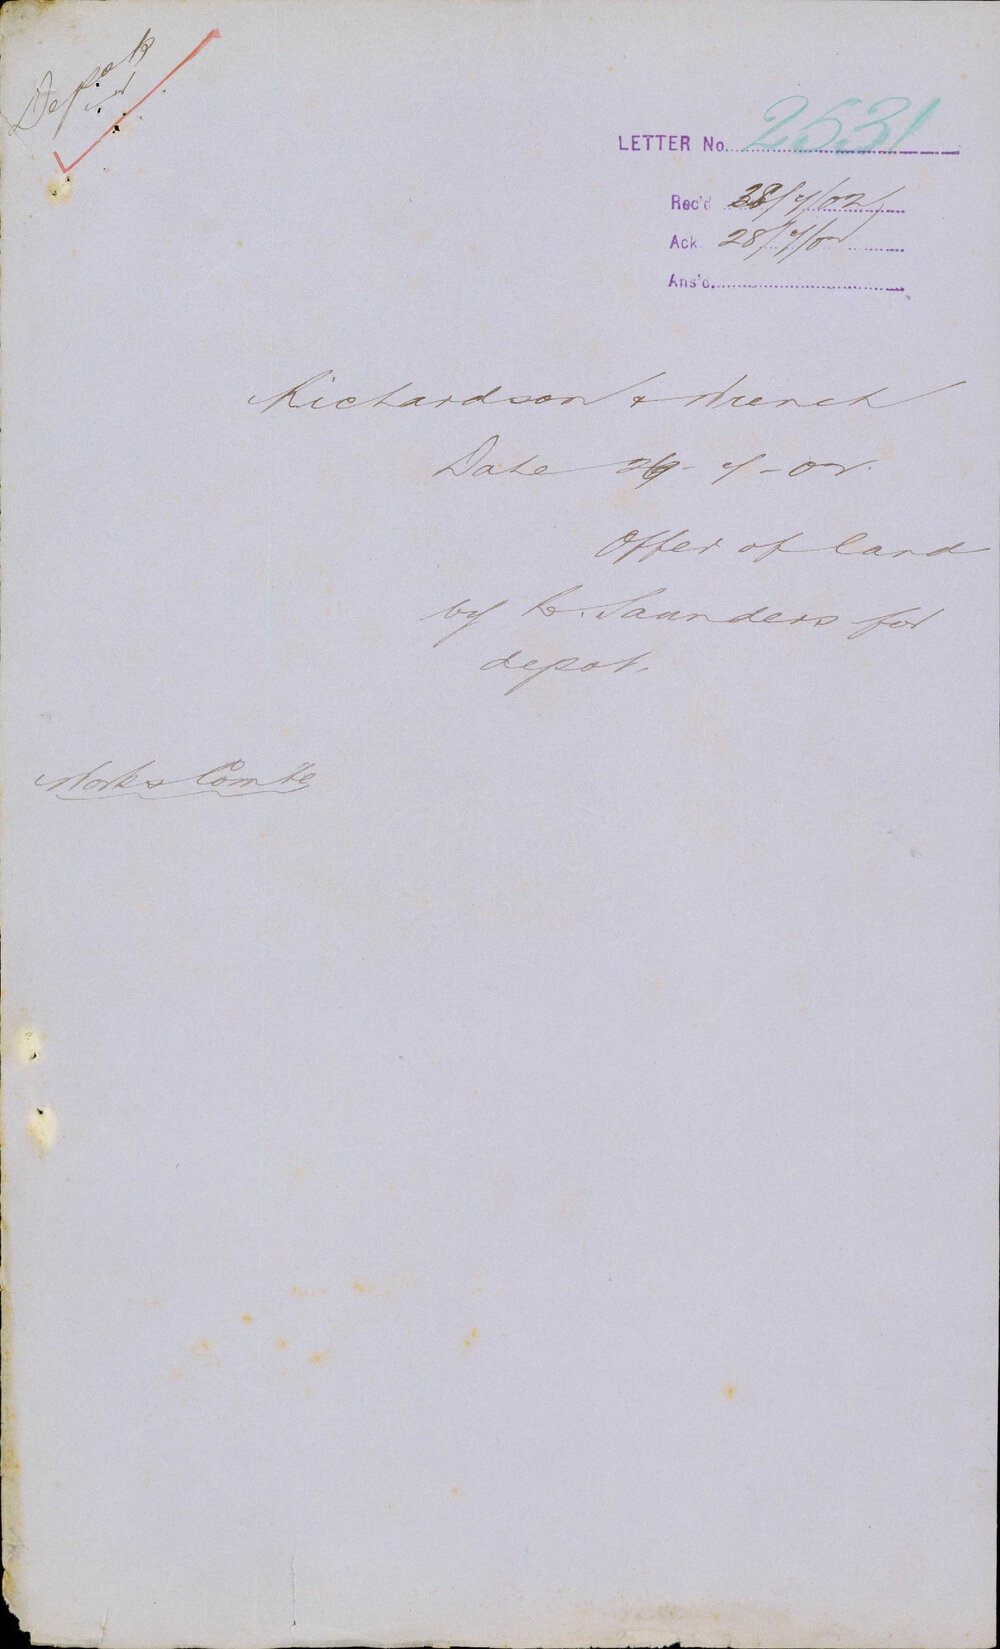 Depot
LETTER No. 2531
Rec'd 28/7/02
Ack 28/7/02
Ans'd.
Richardson & Wrench
Date 26-7-02.
Offer of land
by C. Saunders for
depot.
Works Comte